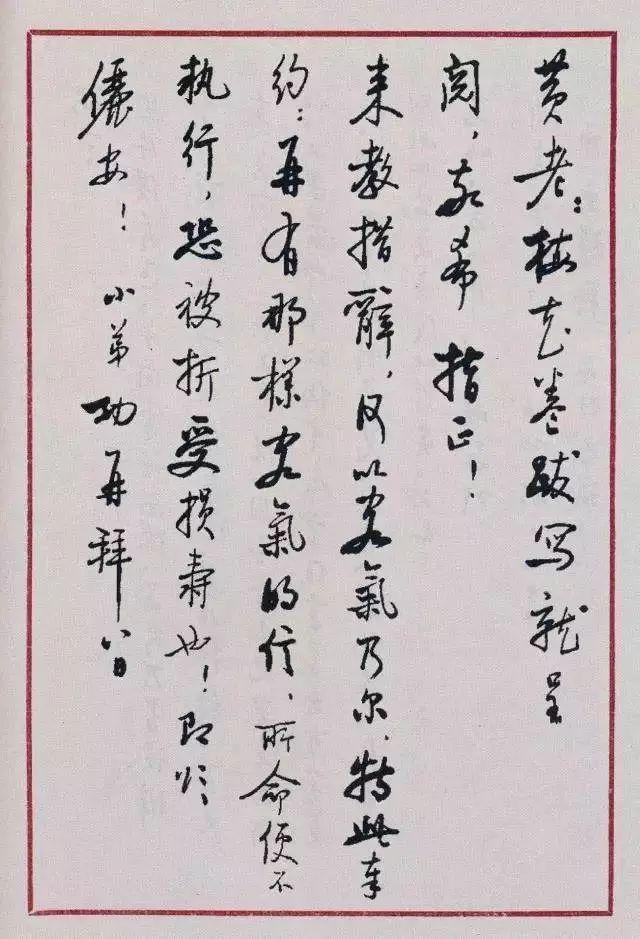 黄老：梅花卷跋写就呈
阅，敬希 指正！
来教措辭，何以客氣乃尔，特此奉
约：再有那樣客氣的信，所命便不
执行，恐被折受损寿也！即颂
儷安！ 小弟功再拜 八日